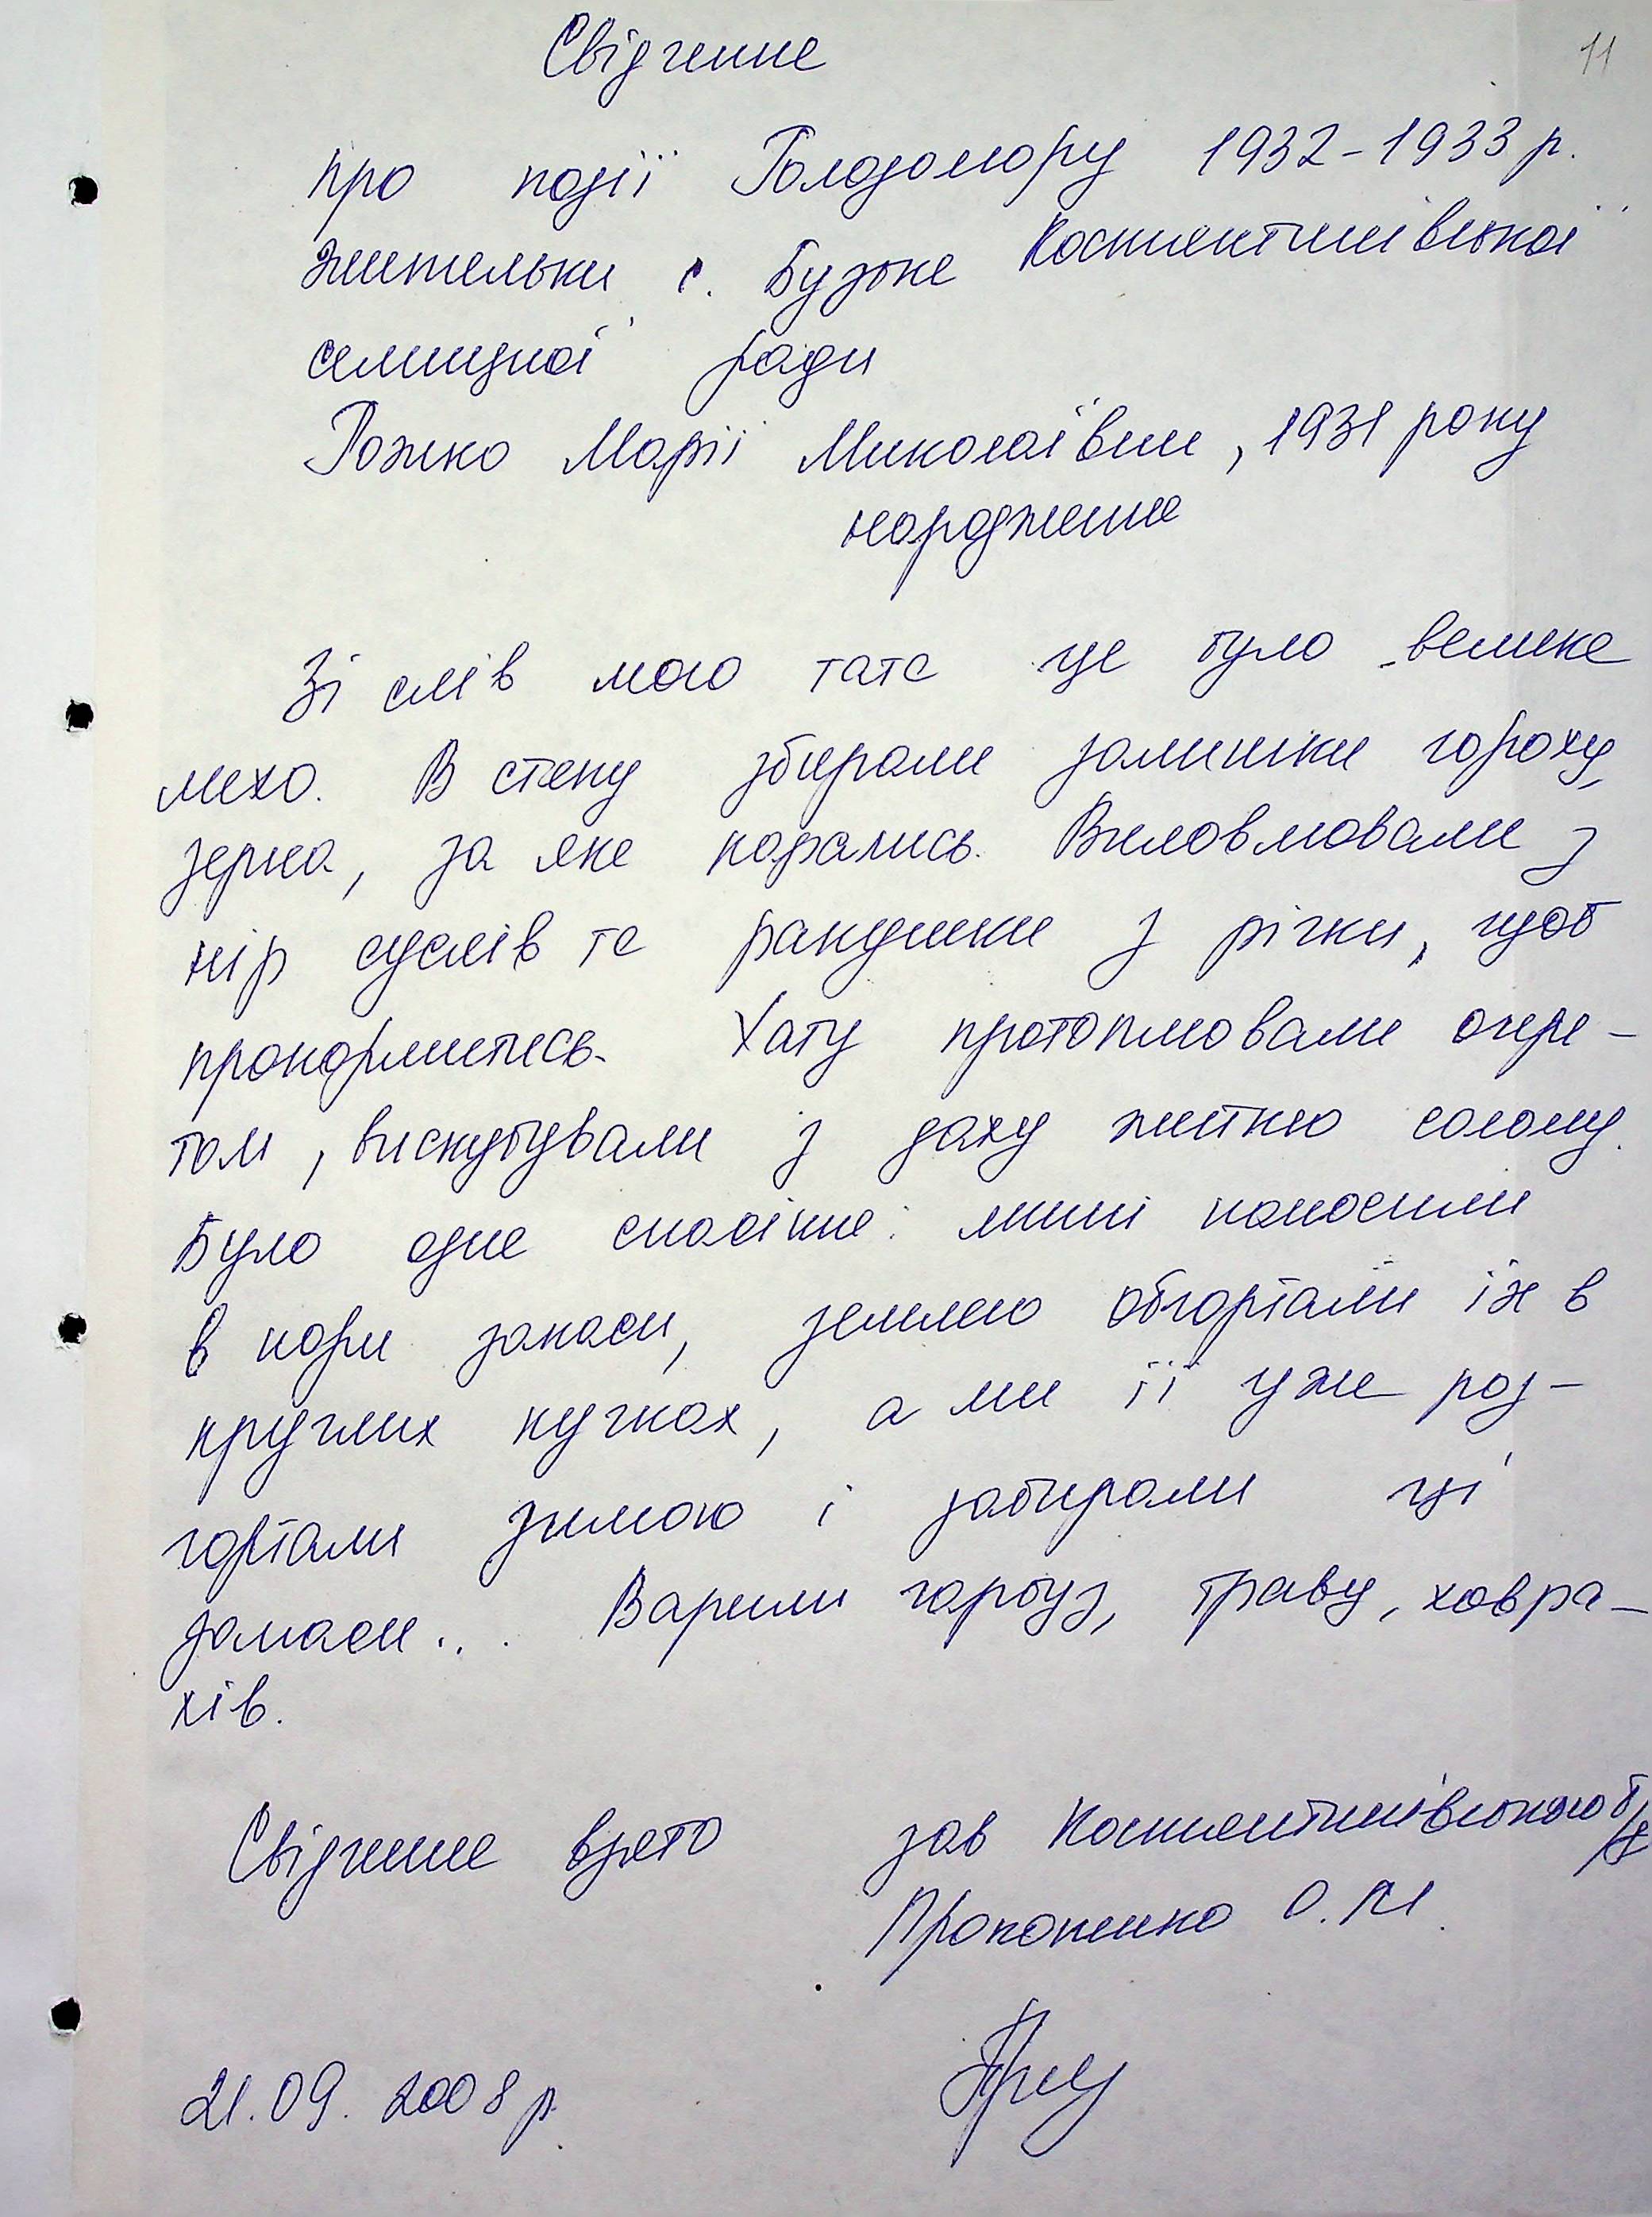 11
Свідчення
про події Голодомору 1932-1933 р.
жительки с. Бузьке Костянтинівської
селищної ради
Рожко Марії Миколаївни, 1931 року
народження
Зі слів мого тата це було велике
лихо. В степу збирали залишки гороху,
зерна, за яке карались. Виловлювали з
нір суслів та ракушки з річки, щоб
прокормитись. Хату протоплювали очере-
том, вискубували з даху житню солому.
Було одне спасіння: миші наносили
в нори запаси, землею обгортали їх в
круглих кучках, а ми її уже роз-
гортали зимою і забирали ці
запаси... Варили гарбуз, траву, ховра-
хів.
Свідчення взято зав Костянтинівського б/ф
Прокопенко О. М.
21.09.2008 р.